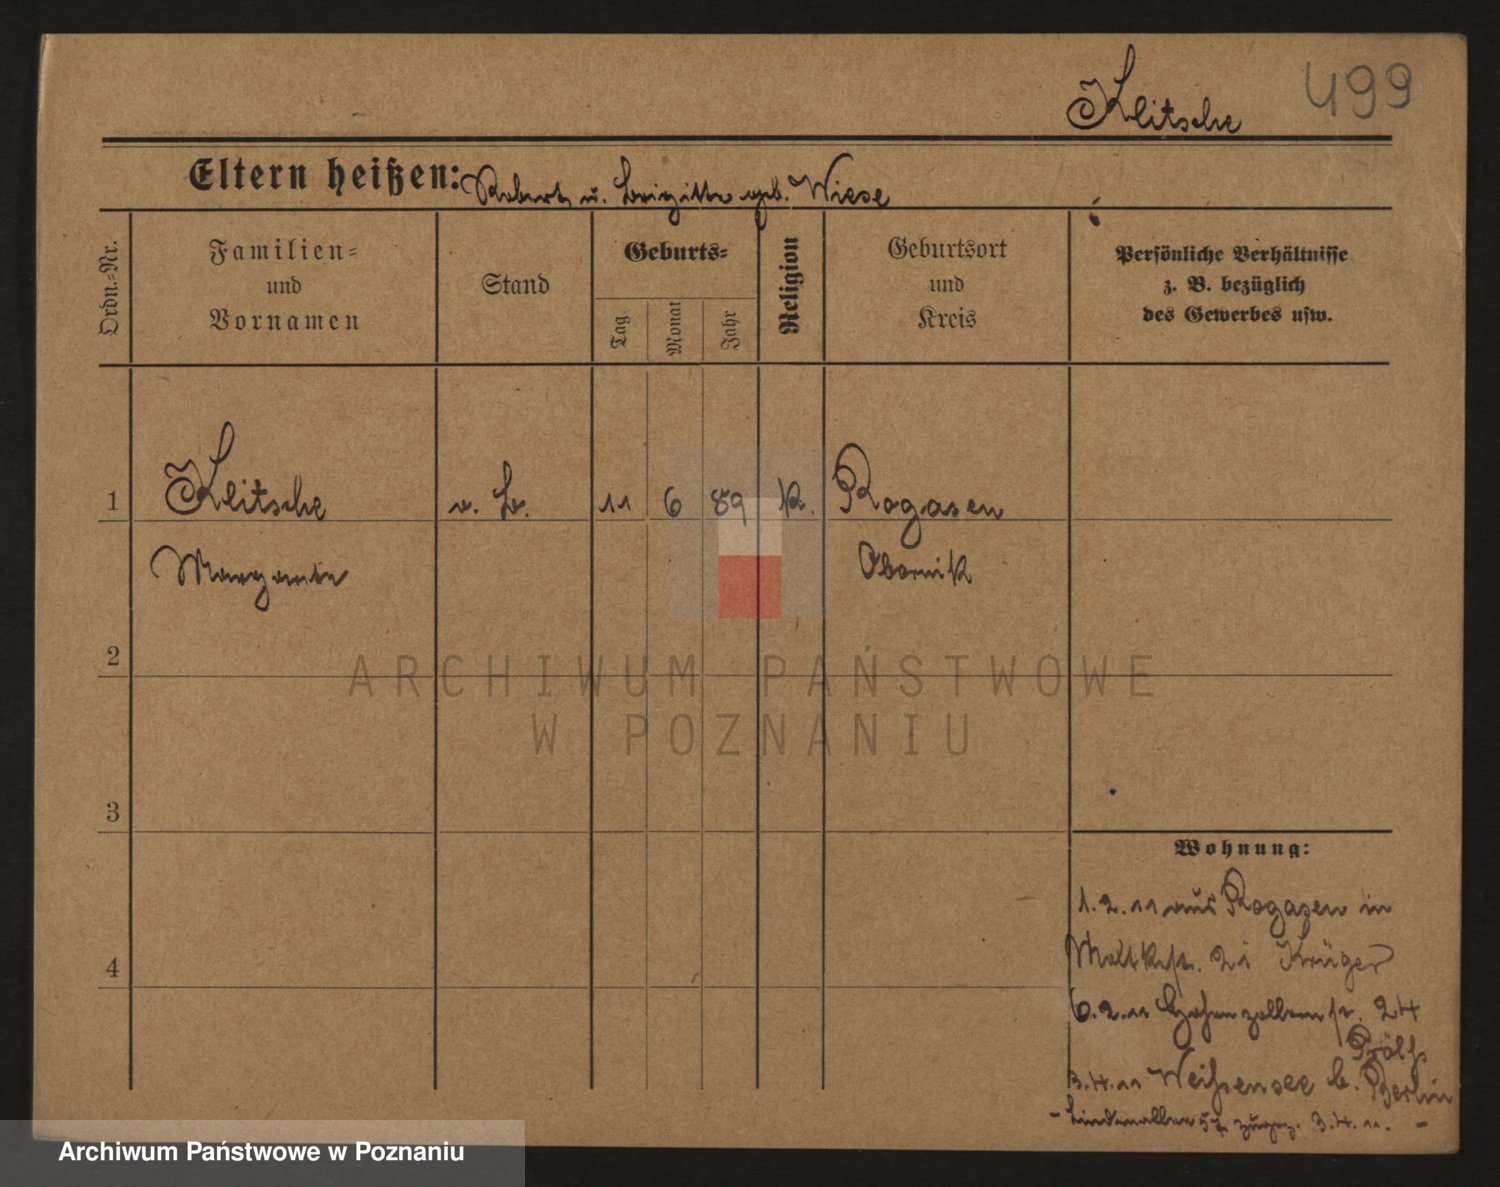 Klitsche 499
Eltern heißen: Robert u. Brigitte geb. Wiese
Ordn.=Nr.
Familien=
und
Vornamen
Stand
Geburts=
Tag
Monat
Jahr
Religion
Geburtsort
und
Kreis
Persönliche Verhältnisse
z. B. bezüglich
des Gewerbes usw.
1 Klitsche 11 6 89 k. Rogasen
Margarete Obornik
2
ARCHIWUM PAŃSTWOWE
W POZNANIU
3
Wohnung:
1.2.11 aus Rogasen in
4
Moltkestr. 21 Krüger
6.2.11 Hohenzollernstr. 24
3.4.11 Weißensee b. Berlin
- Lindenallee zugez. 3.4.11. -
Archiwum Państwowe w Poznaniu